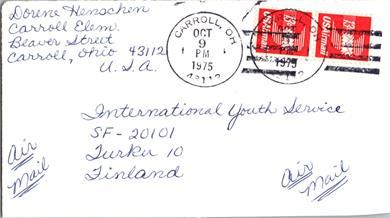 Dorene Henschen
Carroll Elem.
Beaver Street
Carroll, Ohio 43112
U.S.A.
CARROLL, OH
OCT
9
PM
1975
43112
1975
USAirmail
USAirmail
International Youth Service
SF-20101
Turku 10
Finland
Air
Mail
Air
Mail